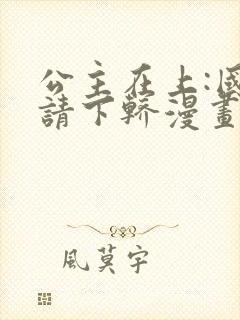 公主在上:國
請下轎漫畫
風莫宇